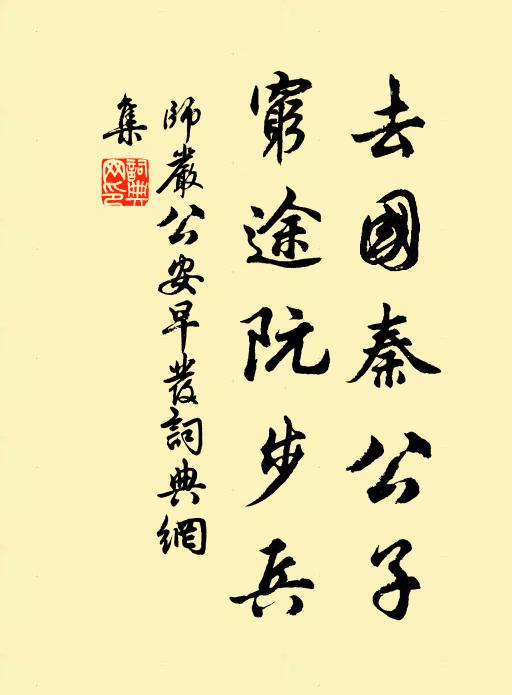 去國秦公子
窮途阮步兵
師嚴公安早發詞典網
集
詞典網印